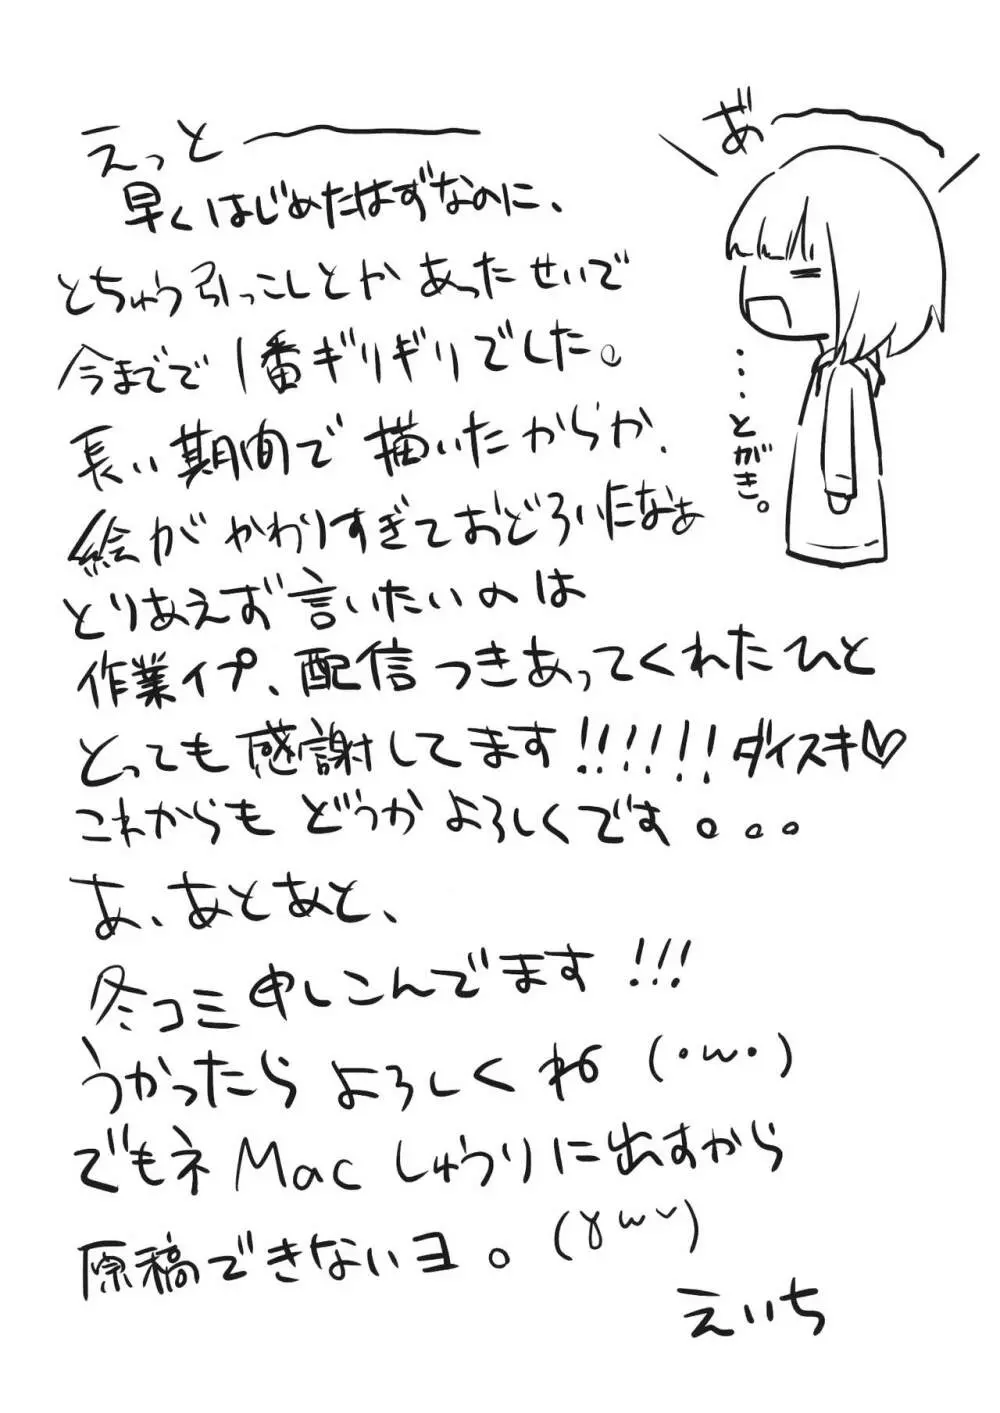 えっと――――
早くはじめたはずなのに、
とちゅう引っこしとかあったせいで
今までで1番ギリギリでした。
長い期間で描いたからか、
絵がかわりすぎておどろいたなぁ
とりあえず言いたいのは
作業イプ、配信つきあってくれたひと
とっても感謝してます!!!!!!ダイスキ♡
これからもどうかよろしくです。。。
あ、あとあと、
冬コミ申しこんでます!!!
うかったらよろしくね(・ω・)
でもネMacしゅうりに出すから
原稿できないヨ。(γω~)
えいち
あ
…とがき。